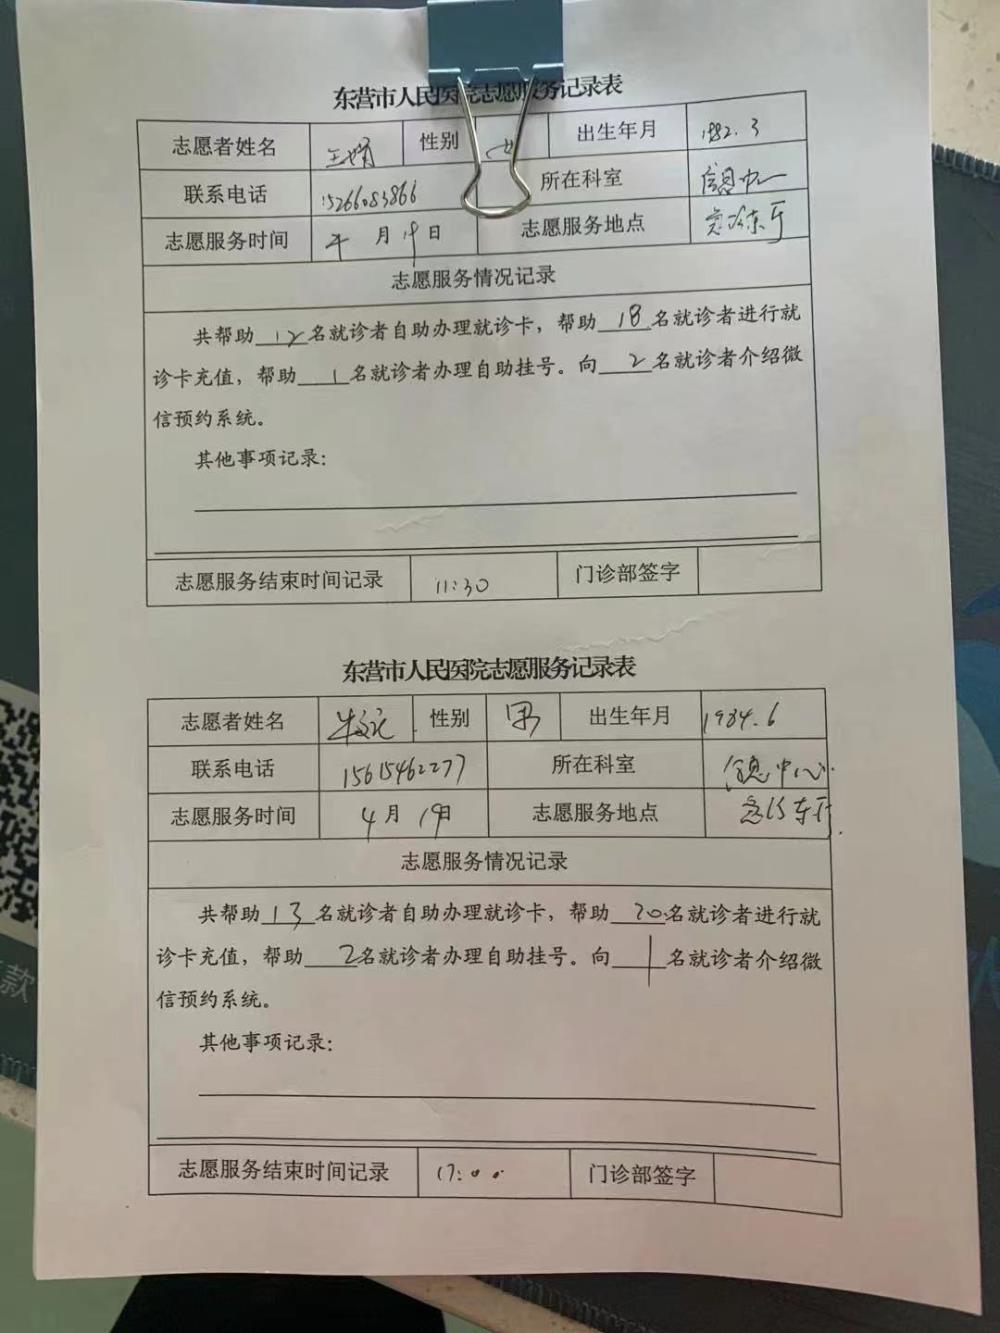 东营市人民医院志愿服务记录表
志愿者姓名 王娟 性别 女 出生年月 1982.3
联系电话 15266083866 所在科室 信息中心
志愿服务时间 4月19日 志愿服务地点 东厅
志愿服务情况记录
共帮助12名就诊者自助办理就诊卡，帮助18名就诊者进行就
诊卡充值，帮助1名就诊者办理自助挂号。向2名就诊者介绍微
信预约系统。
其他事项记录：
志愿服务结束时间记录 11:30 门诊部签字
东营市人民医院志愿服务记录表
志愿者姓名 性别 男 出生年月 1984.6
联系电话 15615462277 所在科室 信息中心
志愿服务时间 4月19日 志愿服务地点 东厅
志愿服务情况记录
共帮助13名就诊者自助办理就诊卡，帮助20名就诊者进行就
诊卡充值，帮助2名就诊者办理自助挂号。向1名就诊者介绍微
信预约系统。
其他事项记录：
志愿服务结束时间记录 17:00 门诊部签字
款